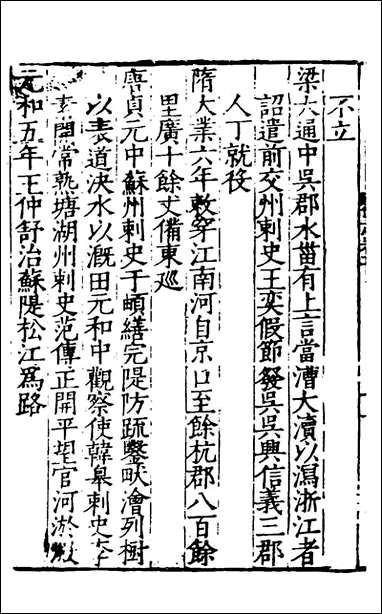 不立
梁大通中吳郡水菑有上言當漕大瀆以瀉浙江者
詔遣前交州刺史王奕假節發吳吳興信義三郡
人丁就役
隋大業六年敕穿江南河自京口至餘杭郡八百餘
里廣十餘丈備東巡
唐貞元中蘇州刺史于頔繕完隄防疏鑿畎澮列樹
以表道決水以溉田元和中觀察使韓皋刺史李
素開常熟塘湖州刺史范傳正開平望官河淤澱
元和五年王仲舒治蘇隄松江爲路